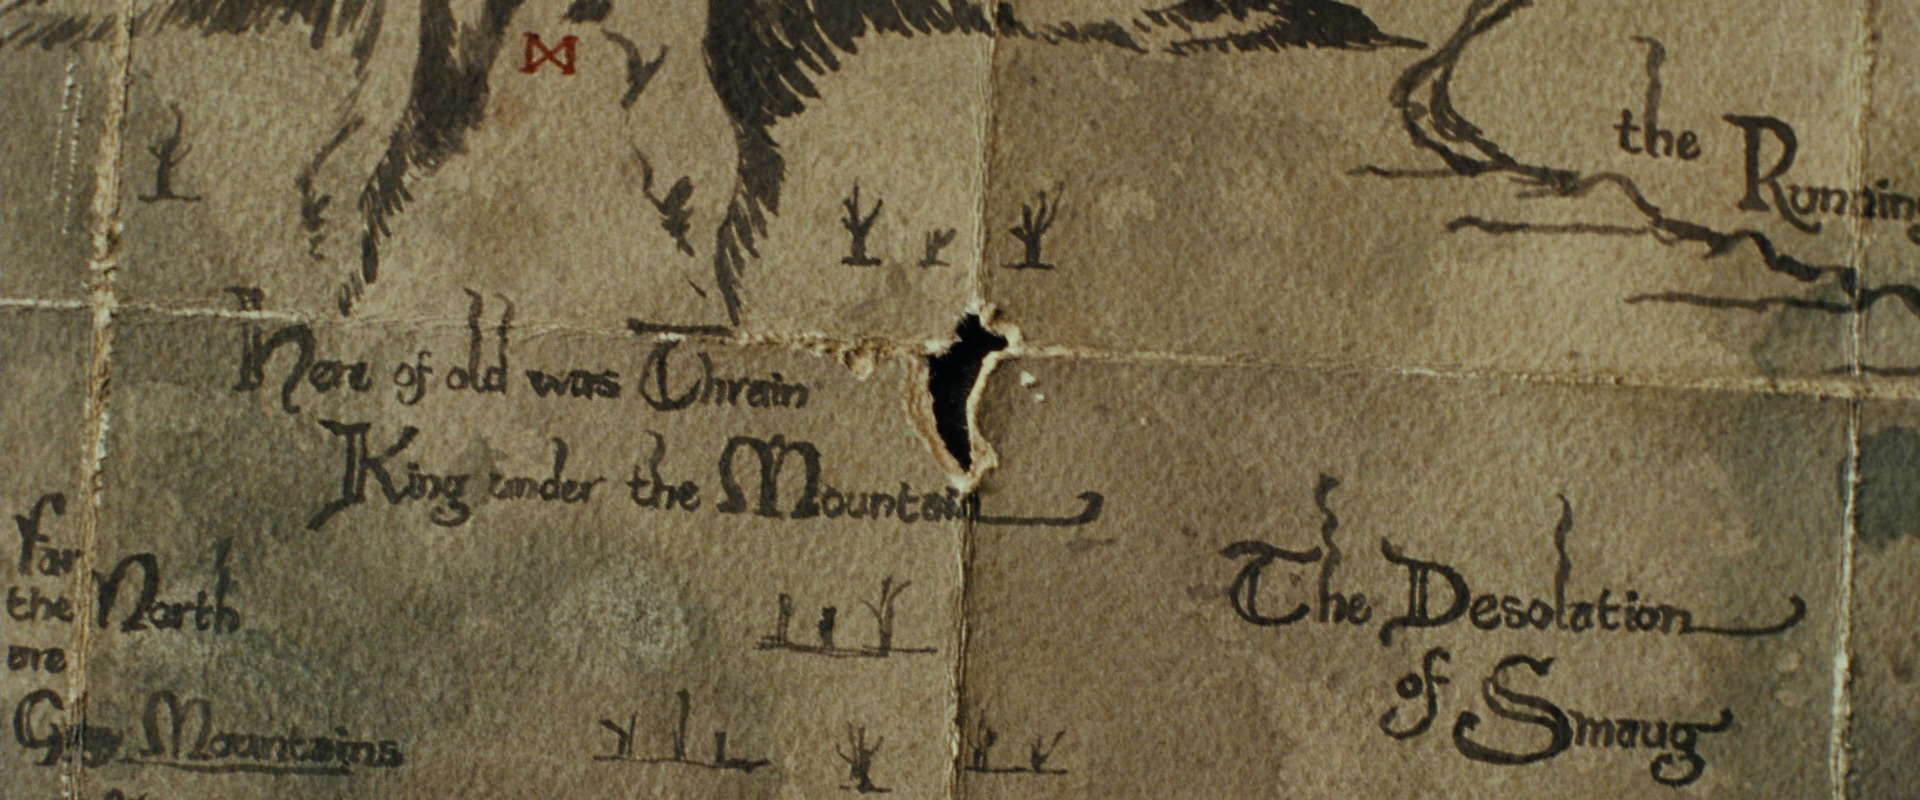 ᛞ
the Running
Here of old was Thrain
King under the Mountain
Far
the North
are
Grey Mountains
The Desolation
of Smaug